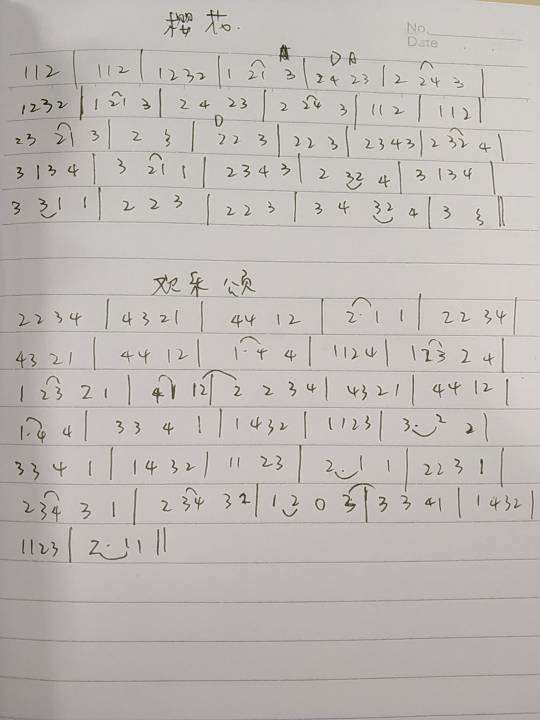 樱花.
No.
Date
A D A
112 | 112 | 1232 | 1 21 3 | 24 23 | 2 24 3 |
1232 | 1 21 3 | 2 4 23 | 2 24 3 | 112 | 112 |
D
23 21 3 | 2 ξ | 2 2 3 | 2 2 3 | 2343 | 2 32 4 |
3 1 3 4 | 3 21 1 | 2 3 4 3 | 2 32 4 | 3 1 3 4 |
3 31 1 | 2 2 3 | 2 2 3 | 3 4 32 4 | 3 ξ ||
欢乐颂
2 2 3 4 | 4 3 2 1 | 44 12 | 2· 1 1 | 2 2 34 |
43 21 | 44 12 | 1· 4 4 | 1124 | 1 23 2 4 |
1 23 2 1 | 4 1 12 | 2 2 3 4 | 4321 | 44 12 |
1· 4 4 | 3 3 4 1 | 1 4 3 2 | 1123 | 3· 2 2 |
33 4 1 | 14 32 | 11 23 | 2· 1 1 | 22 3 1 |
2 34 3 1 | 2 34 32 | 1 2 0 3 | 3 3 41 | 1432 |
1123 | 2· 11 ||